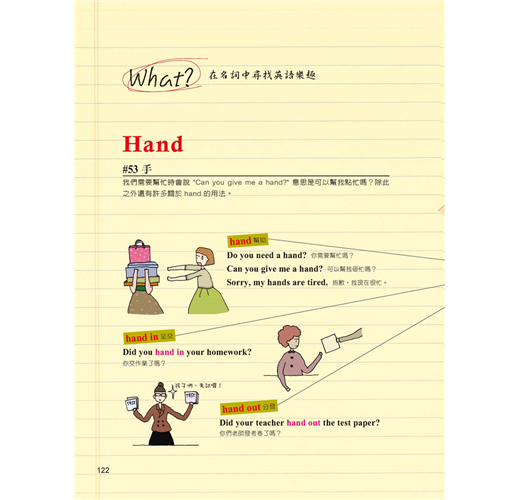 What? 在名詞中尋找英語樂趣
Hand
#53 手
我們需要幫忙時會說 "Can you give me a hand?" 意思是可以幫我點忙嗎？除此
之外還有許多關於 hand 的用法。
hand 幫助
Do you need a hand? 你需要幫忙嗎？
Can you give me a hand? 可以幫我個忙嗎？
Sorry, my hands are tired. 抱歉，我現在很忙。
hand in 呈交
Did you hand in your homework?
你交作業了嗎？
孩子們，考試囉！
TEST
TEST
hand out 分發
Did your teacher hand out the test paper?
你們老師發考卷了嗎？
122